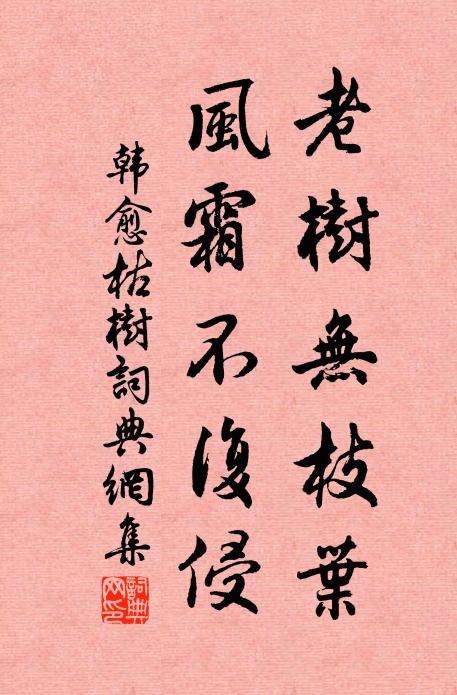 老樹無枝葉
風霜不復侵
韓愈枯樹詞典網集
詞典網印